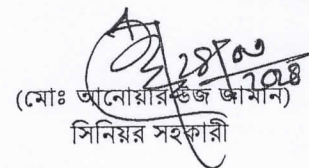 ২৪/০৩
২০২৪
(মোঃ আনোয়ারুজ্জামান)
সিনিয়র সহকারী